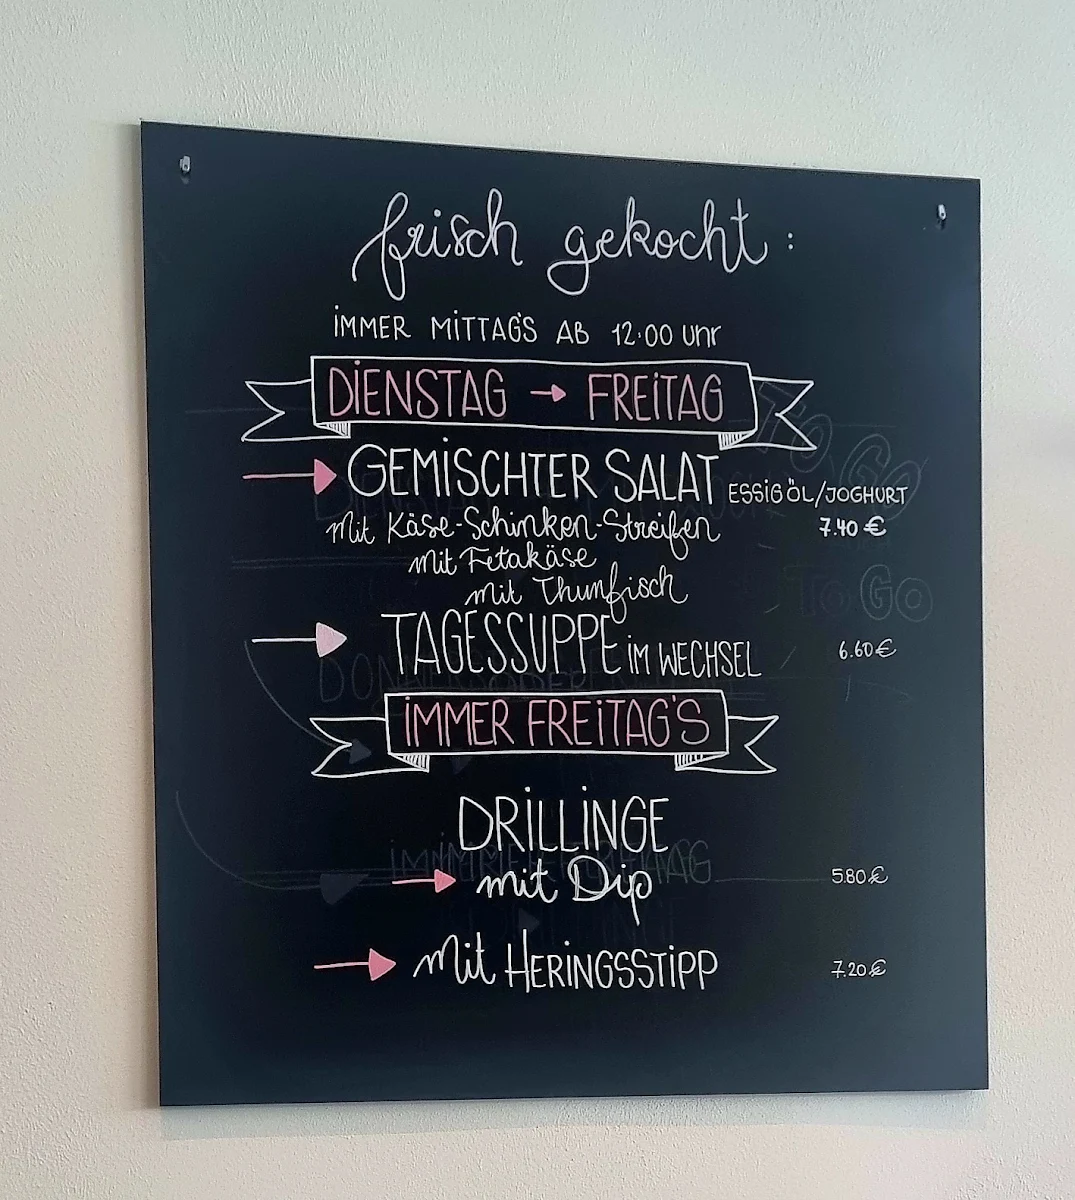 frisch gekocht:
IMMER MITTAG'S AB 12:00 Uhr
DIENSTAG → FREITAG
GEMISCHTER SALAT ESSIG ÖL/JOGHURT
mit Käse-Schinken-Streifen 7.40 €
mit Fetakäse
mit Thunfisch
TAGESSUPPE IM WECHSEL 6.60 €
IMMER FREITAG'S
DRILLINGE
mit Dip 5.80 €
mit HERINGSSTIPP 7.20 €
TO GO
To Go